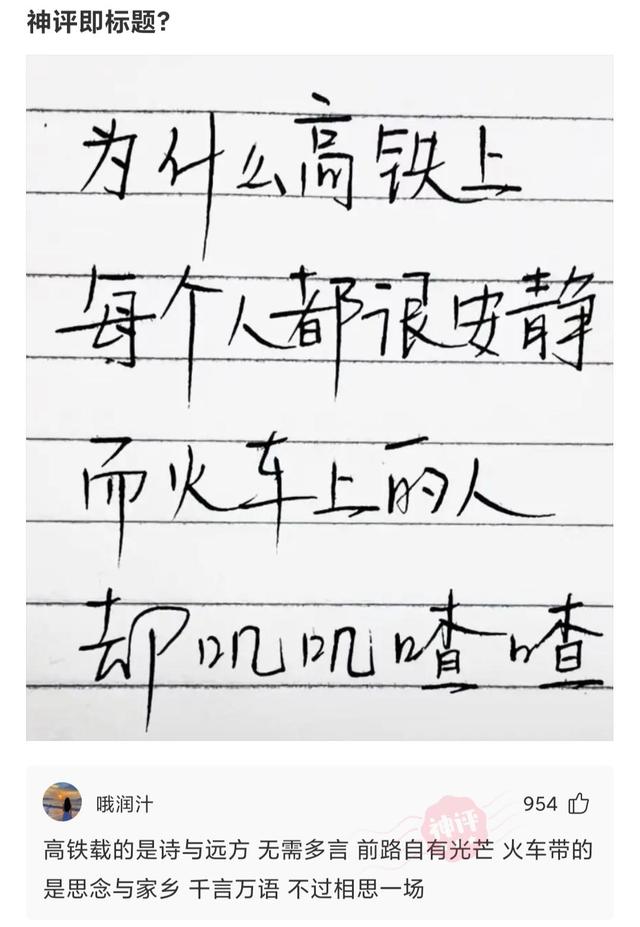 神评即标题?
为什么高铁上
每个人都很安静
而火车上的人
却叽叽喳喳
哦润汁
954
神评
高铁载的是诗与远方 无需多言 前路自有光芒 火车带的
是思念与家乡 千言万语 不过相思一场